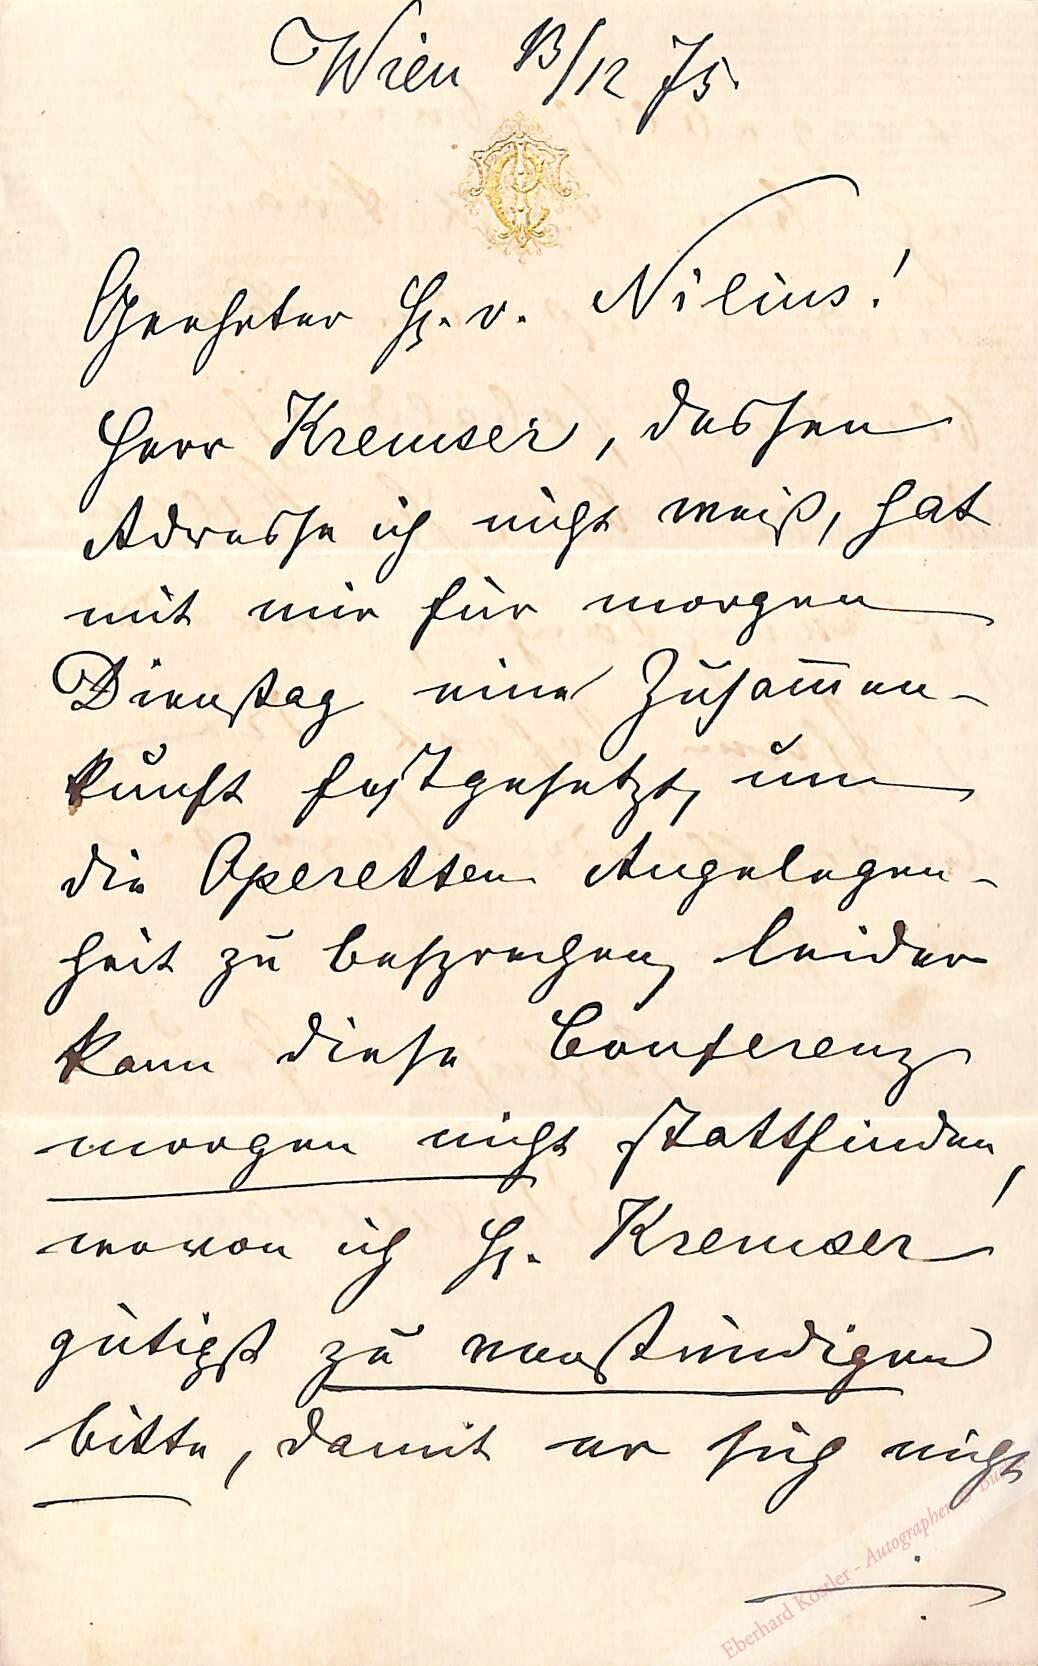 Wien 13/12 75.
Geehrter Hr. v. Nilius!
Herr Kremser, dessen
Adresse ich nicht weiß, hat
mit mir für morgen
Dienstag eine Zusam̅en-
kunft festgesetzt, um
die Operetten Angelegen-
heit zu besprechen, leider
kann diese Conferenz
morgen nicht stattfinden,
wovon ich Hr. Kremser
gütigst zu verständigen
bitte, damit er sich nicht
Eberhard Köstler - Autographen